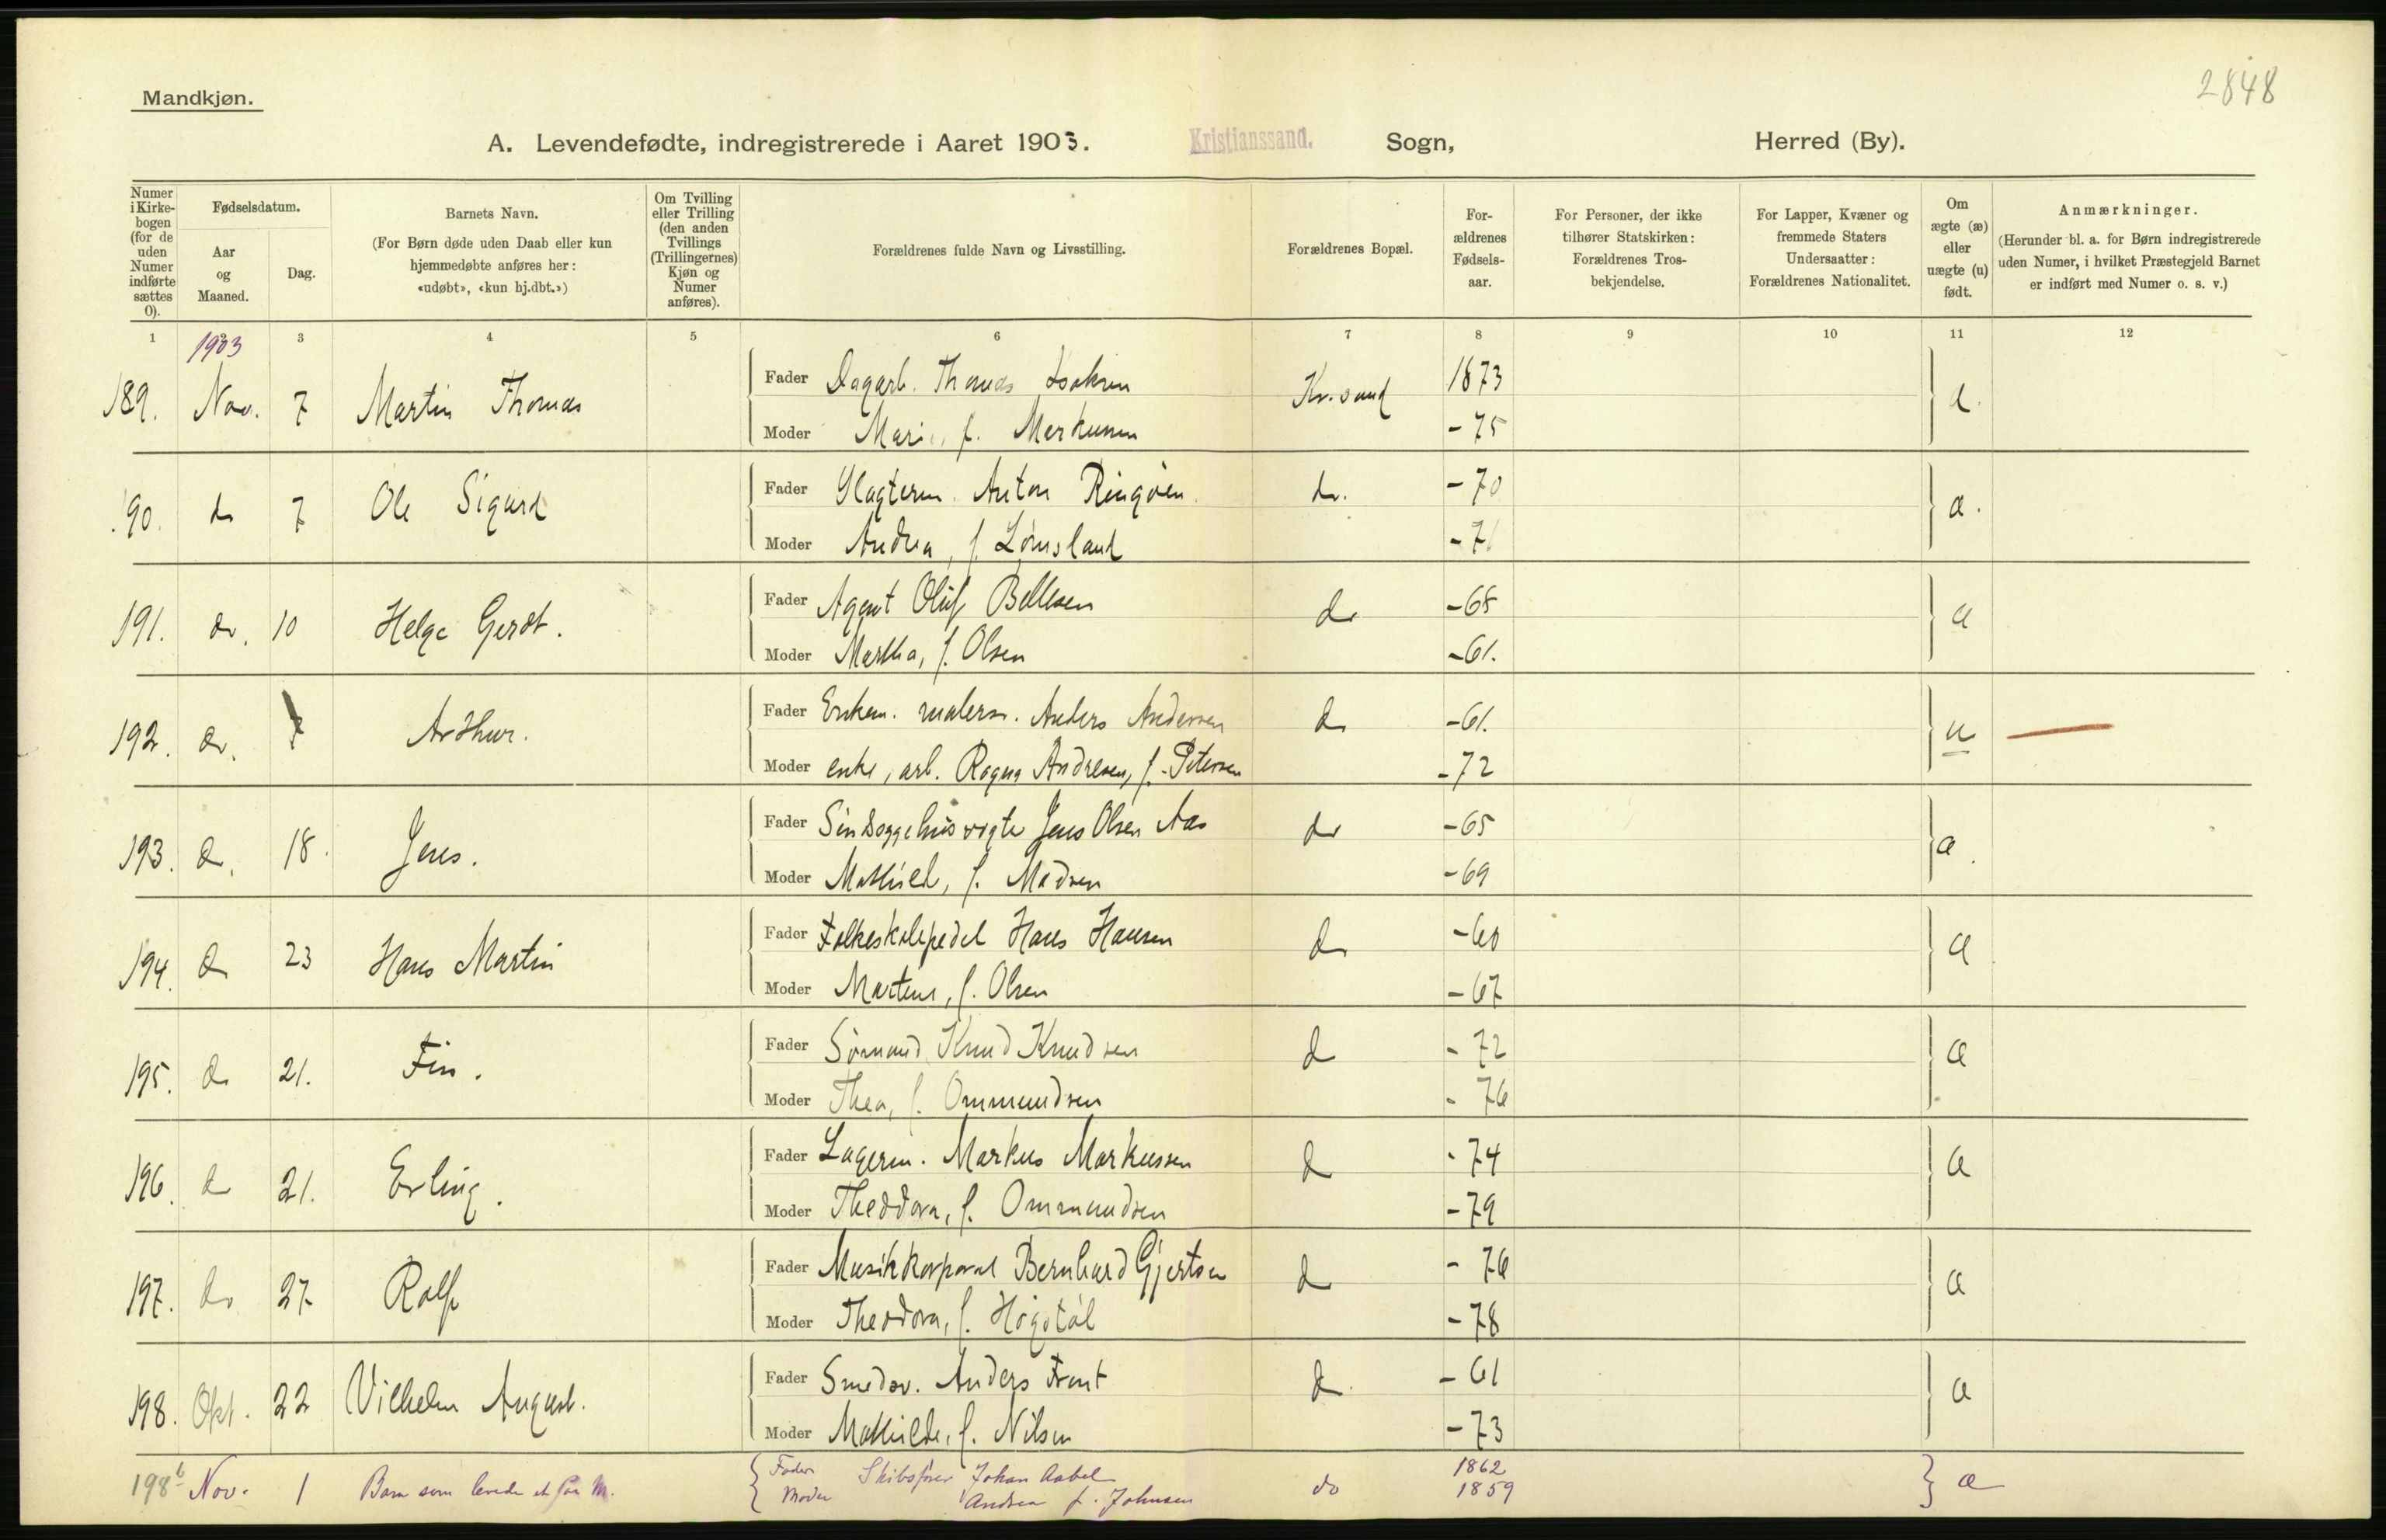 2848
Mandkjøn.
A. Levendefødte, indregistrerede i Aaret 1903. Kristianssand. Sogn, Herred (By).
Numer i Kirkebogen (for de uden Numer indførte sættes 0).
Fødselsdatum.
Aar og Maaned.
Dag.
Barnets Navn.
(For Børn døde uden Daab eller kun hjemmedøbte anføres her: «udøbt», «kun hj.dbt.»)
Om Tvilling eller Trilling (den anden Tvillings (Trillingernes) Kjøn og Numer anføres).
Forældrenes fulde Navn og Livsstilling.
Forældrenes Bopæl.
Forældrenes Fødselsaar.
For Personer, der ikke tilhører Statskirken: Forældrenes Trosbekjendelse.
For Lapper, Kvæner og fremmede Staters Undersaatter: Forældrenes Nationalitet.
Om ægte (æ) eller uægte (u) født.
Anmærkninger.
(Herunder bl. a. for Børn indregistrerede uden Numer, i hvilket Præstegjeld Barnet er indført med Numer o. s. v.)
1 2 3 4 5 6 7 8 9 10 11 12
1903
189. Nov. 7 Martin Thomas Fader Dagarb. Thomas Isaksen Kr.sand 1873 æ.
Moder Marie, f. Markussen - 75
190. do 7 Ole Sigurd Fader Slagterm. Anton Ringøen. do. - 70 æ.
Moder Andrea, f. Lømsland - 71
191. do. 10 Helge Gerdt. Fader Agent Oluf Bellesen do -68 æ
Moder Martha, f. Olsen -61.
192. do. 7 Arthur. Fader Enkem. malerm. Anders Andersen do -61. u
Moder enke, arb. Ragna Andresen, f. Petersen -72
193. do. 18. Jens. Fader Sindssygehusvogter Jens Olsen Aas do -65 æ.
Moder Mathilde, f. Madsen -69
194. do 23 Hans Martin Fader Folkeskolepedel Hans Hansen do -60 æ
Moder Martine, f. Olsen -67
195. do 21. Fin. Fader Sømand Knud Knudsen do - 72 æ
Moder Thea, f. Ommundsen - 76
196. do 21. Erling. Fader Lagerm. Markus Markussen do - 74 æ
Moder Theodora, f. Ommundsen - 79
197. do 27 Rolf Fader Musikkorporal Bernhard Gjertsen do - 76 æ
Moder Theodora, f. Høgstøl - 78
198. Okt. 22 Vilhelm August. Fader Smedsv. Anders Front do - 61 æ
Moder Mathilde, f. Nilsen - 73
198b Nov. 1 Barn som levede et par M. Fader Skibsfører Johan Aabel do 1862 æ
Moder Andrea f. Johnsen 1859